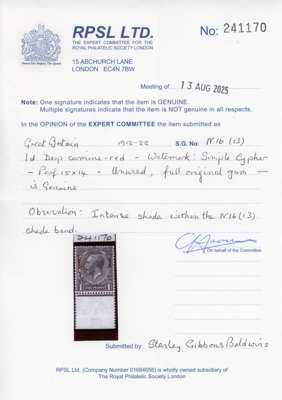 RPSL LTD.
THE EXPERT COMMITTEE FOR THE
ROYAL PHILATELIC SOCIETY LONDON
No: 241170
15 ABCHURCH LANE
LONDON EC4N 7BW
Meeting of 13 AUG 2025
Note: One signature indicates that the item is GENUINE.
Multiple signatures indicate that the item is NOT genuine in all respects.
In the OPINION of the EXPERT COMMITTEE the item submitted as
Great Britain 1912-22 S.G. No: N16 (13)
1d Deep carmine-red - Watermark Simple Cypher
- Perf 15x14 - Unused, full original gum -
is Genuine
Observation: Intense shade within the N16 (13)
shade band.
On behalf of the Committee
241170
Submitted by Stanley Gibbons Baldwin's
RPSL Ltd. (Company Number 01694656) is wholly owned subsidiary of
The Royal Philatelic Society London